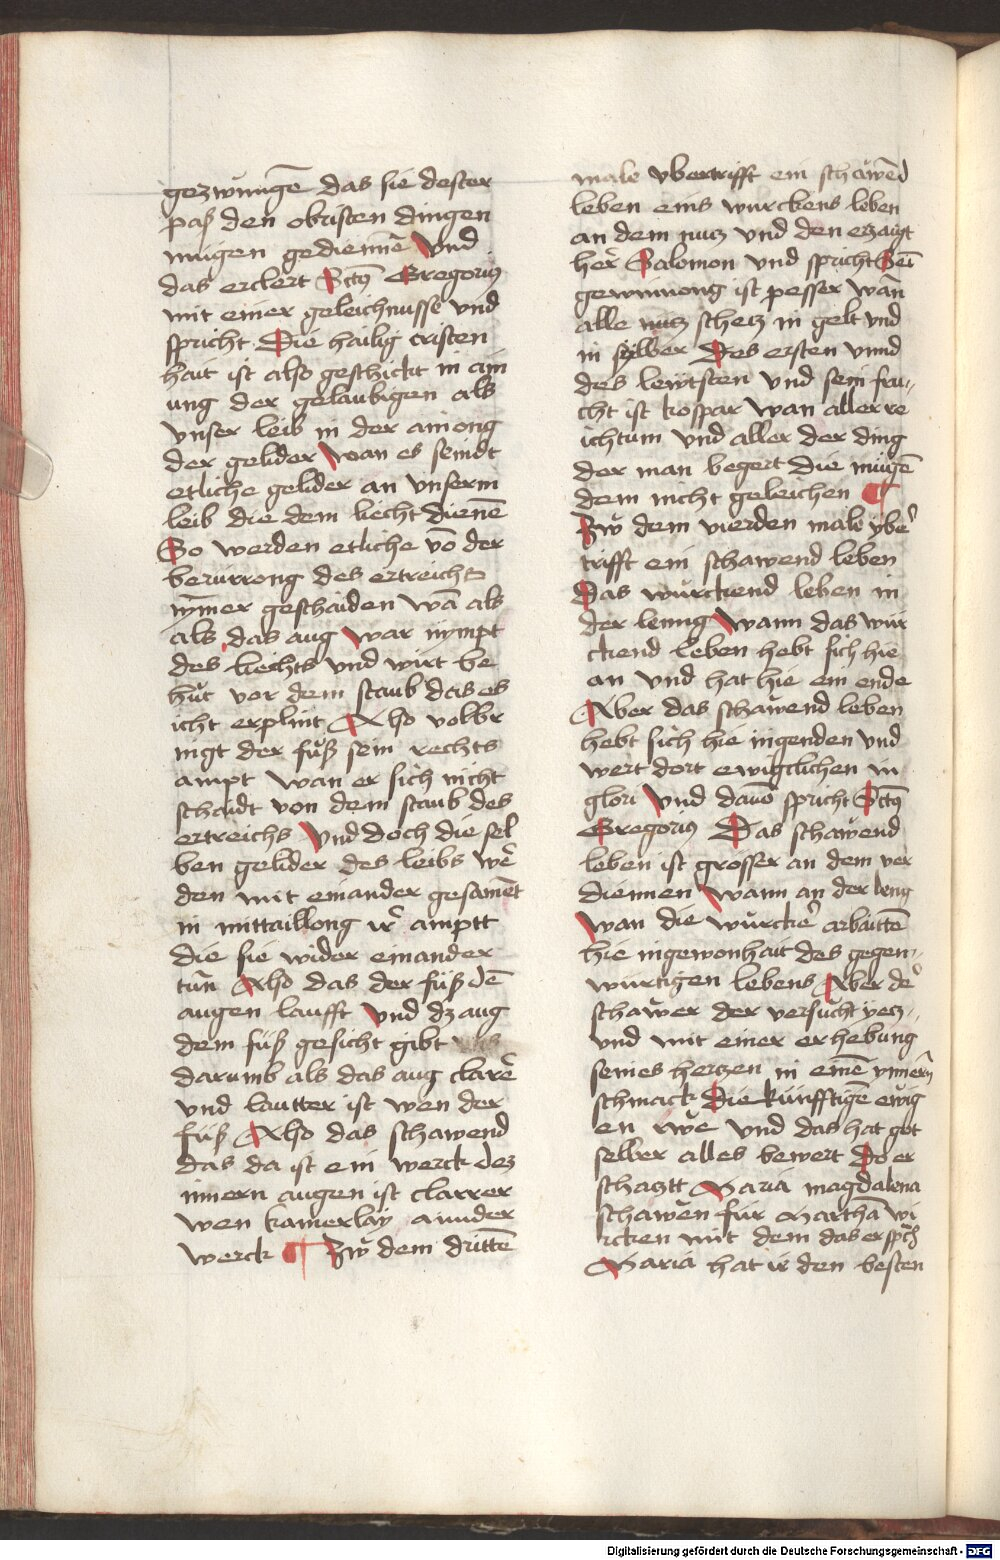 gezwungē das sie dester
paß den obristen dingen
mügen gediennē Vnd
das erclert Sctꝰ Gregoriꝰ
mit einer geleichnusse vnd
spricht Die hailig cristen
hait ist also geschickt in ain
ung der gelaubigen als
vnser leib in der ainong
der gelider wan es seindt
etliche gelider an vnserm
leib die dem liecht dienē
So werden etliche vō der
berürrong des ertreichs
ym̄er geschaiden wā als
als das aug war nympt
des liechts vnd wirt be
hüt vor dem staub das es
icht erplint Also volbr
nigt der fuß sein rechts
ampt wan er sich nicht
schaidt von dem staub des
ertreichs Vnd doch die sel
ben gelider des leibs wē
den mit einander gesamēt
in mittaillong ir̄ amptt
die sie wider einander
tůn Also das der fůß dē
augen laufft vnd dz aug
dem fůß gesicht gibt
darumb als das aug clarē
vnd lautter ist wen der
fůß Also das schawend
das da ist ein werck dez
innern augen ist clarrer
wen kainerlay annder
werck ¶ Zw̌ dem drittē
male vbertrifft ein schawēd
leben eins wurckens leben
an dem nutz vnd den erzaigt
her Salomon vnd spricht Sei
gewinnong ist pesser wan
alle nutz schetz in gelt vnd
in sylber Des ersten vnnd
des lewtsten vnd sein fru-
cht ist kospar wan aller re
ichtum vnd aller der ding
der man begert die mügē
dem nicht geleichen ¶
Zw̌ dem vierden male yber
trifft ein schawend leben
Das würckend leben in
der leng Wann das wür
ckend leben hebt sich hie
an vnd hat hie ein ende
Aber das schawend leben
hebt sich hie ingenden vnd
wert dort ewigclichen in
glori Vnd dauō spricht Sctꝰ
Gregoriꝰ Das schawend
leben ist grösser an dem ver
diennen Wann an der leng
Wan die würckē arbaittē
hie ingewonhait des gegen-
würtigen lebens Aber dē
schawer der versücht yetz-
vnd mit einer erhebung
seines hertzen in einē ynnern
schmack Die künfftigē ewig
en rwe vnd das hat got
selber alles bewert Do er
schaytt Maria magdalena
schawen für Martha wi
rcken mit dem das er sprch
Maria hat ir den besten
Digitalisierung gefördert durch die Deutsche Forschungsgemeinschaft - DFG